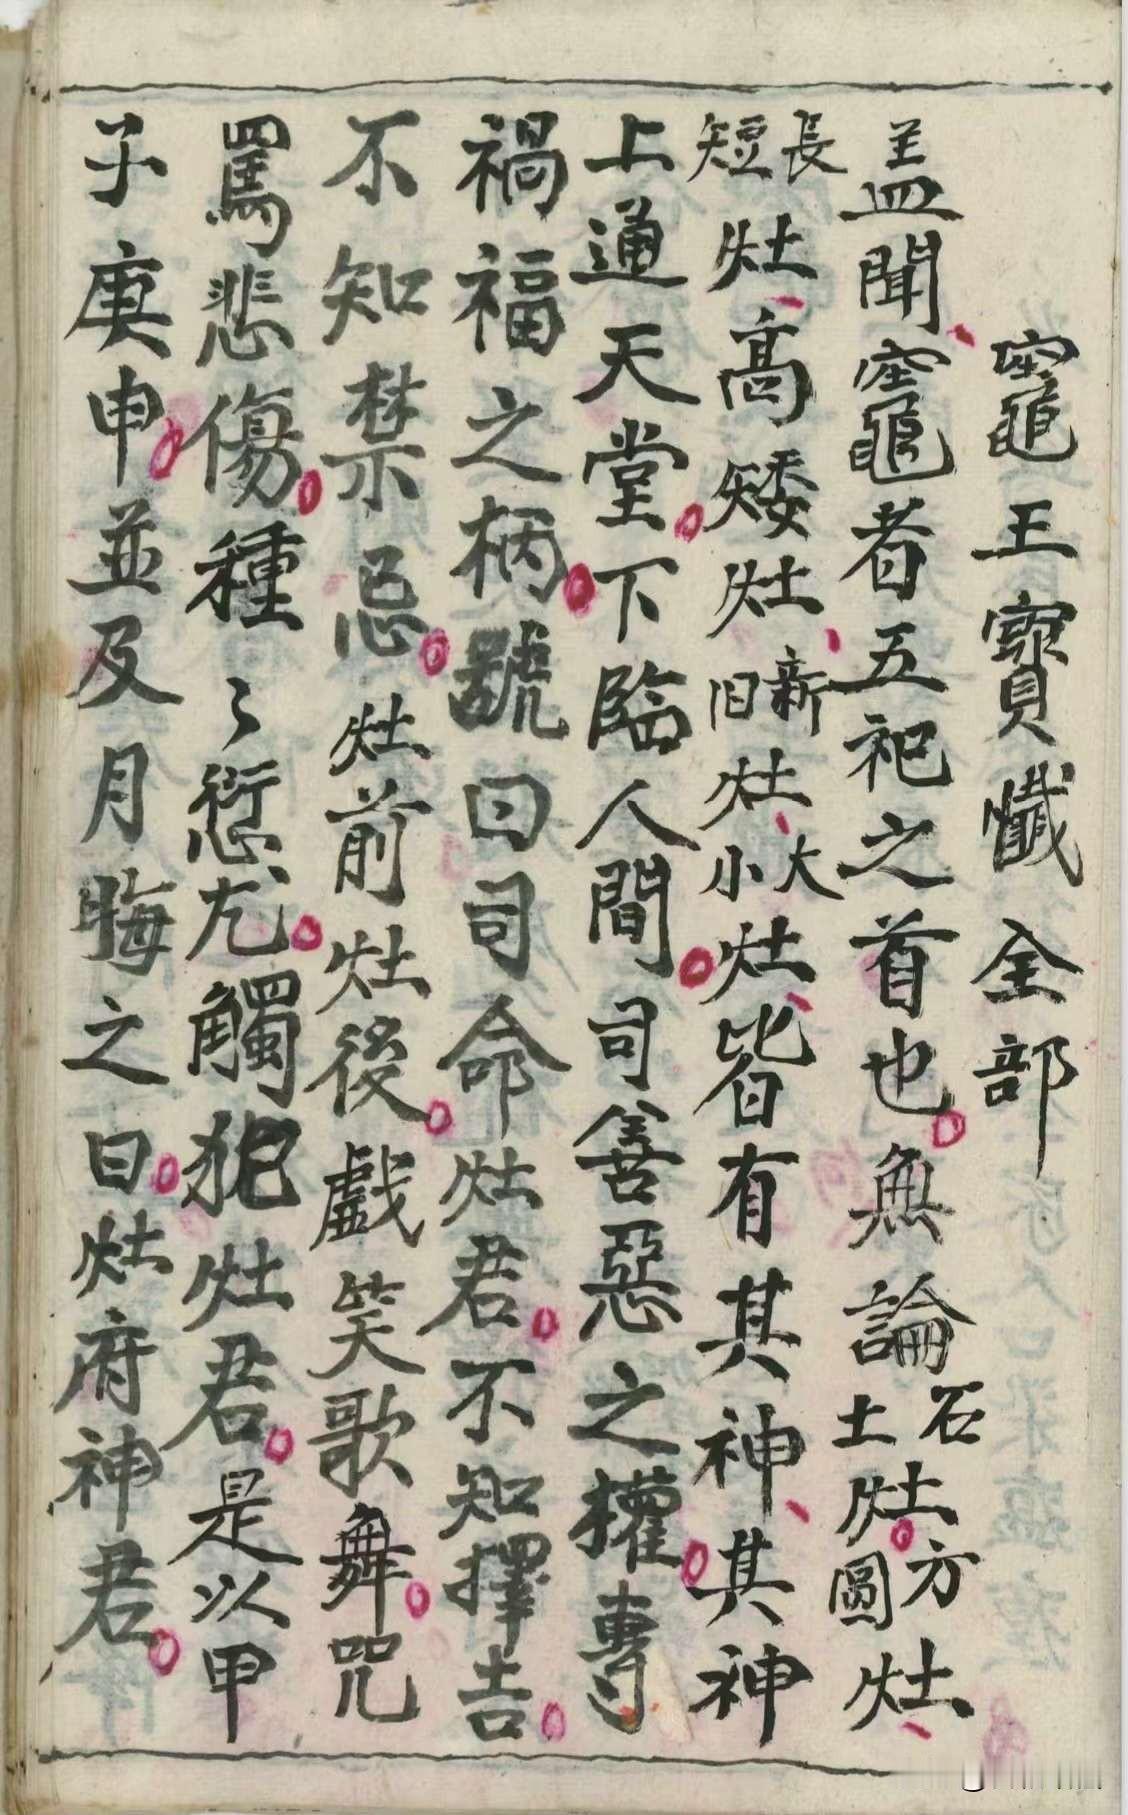 竈王寳懺全部
盖聞竈者五祀之首也無論石土灶方圓灶
長短灶高矮灶新旧灶大小灶皆有其神其神
上通天堂下臨人間司善惡之權專
禍福之柄號曰司命灶君不知擇吉
不知禁忌灶前灶後戲笑歌舞咒
罵悲傷種〻愆尤觸犯灶君是以甲
子庚申並及月晦之日灶府神君